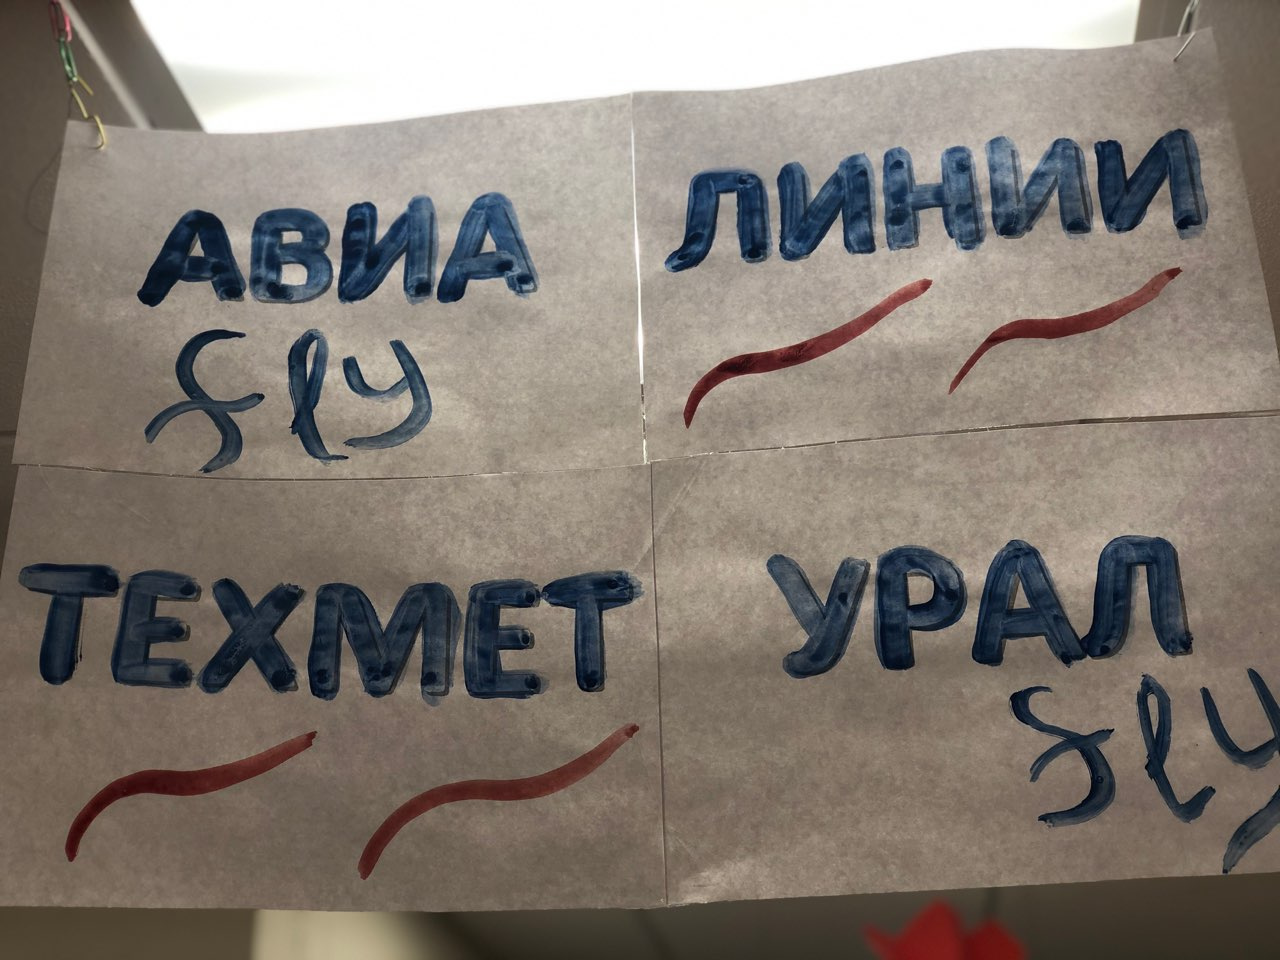 АВИА ЛИНИИ
fly
ТЕХМЕТ УРАЛ
fly